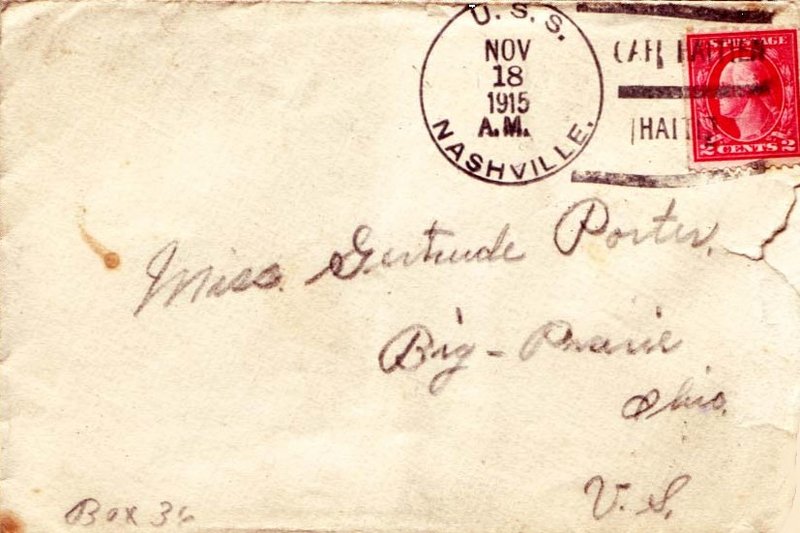 U.S.S. NASHVILLE.
NOV
18
1915
A.M.
CAPE HAITIEN
HAITI
POSTAGE
2 CENTS 2
Miss. Gertrude Porter.
Big-Prairie
Ohio.
U.S.
Box 36